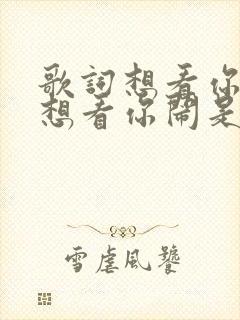 歌詞想看你
想看你鬧是
雪虐風饕